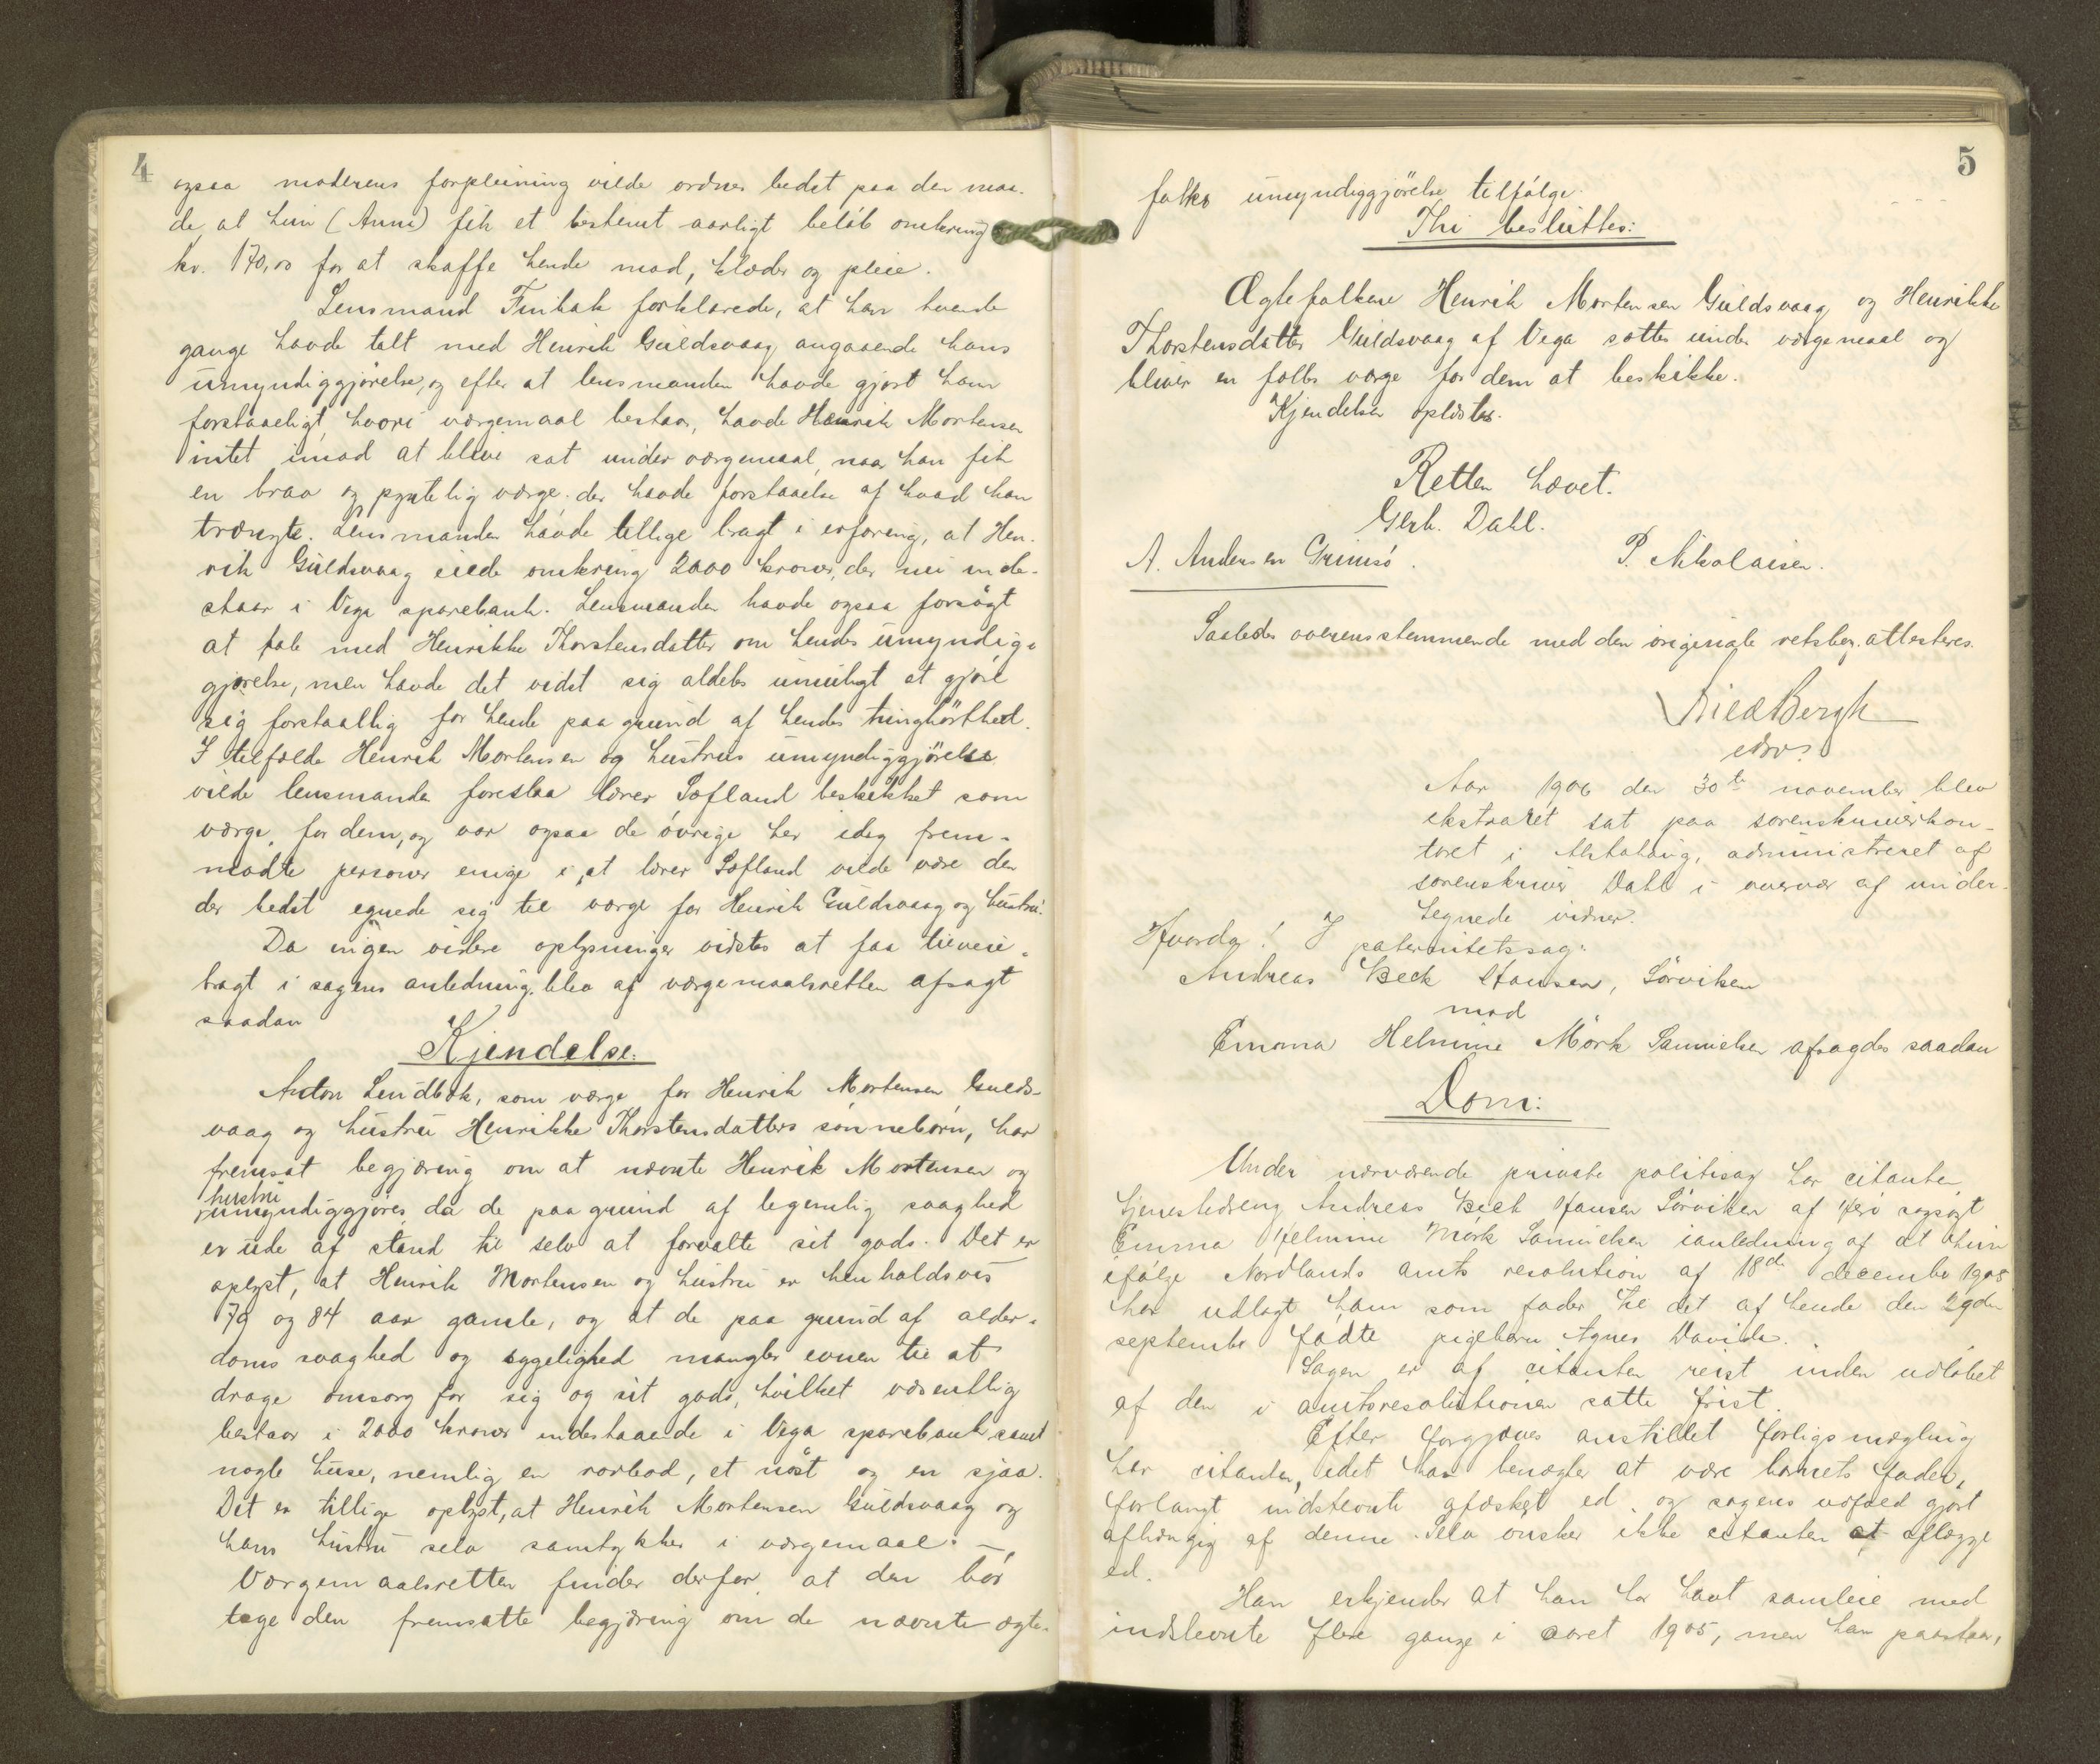 4
ogsaa moderens forpleining vilde ordnes bedst paa den maa-
de, at hun (Anne) fik et bestemt aarligt beløb omkring
kr. 170,00 for at skaffe hende mad, klæder og pleie.
Lensmand Finbak forklarede, at han tvende
gange havde talt med Henrik Guldsvaag angaaende hans
umyndiggjørelse, og efter at lensmanden havde gjort ham
forstaaeligt, hvori værgemaal bestaar, havde Henrik Mortensen
intet imod at blive sat under værgemaal, naar han fik
en brav og pyntelig værge. der havde forstaaelse af hvad han
trængte. Lensmanden havde tillige bragt i erfaring, at Hen-
rik Guldsvaag eiede omkring 2000 kroner, der nu inde-
staar i Vega sparebank. Lensmanden havde ogsaa forsøgt
at tale med Henrikke Thorstensdatter om hendes umyndig-
gjørelse, men havde det vidst sig aldeles umuligt at gjøre
sig forstaaelig for hende paa grund af hendes tunghørthed.
I tilfælde Henrik Mortensen og hustrus umyndiggjørelse
vilde lensmanden foreslaa lærer Sæfland beskikket som
værge for dem, og var ogsaa de øvrige her idag frem-
mødte personer enige i, at lærer Sæfland vilde være den
der bedst egnede sig til værge for Henrik Guldsvaag og hustru.
Da ingen videre oplysninger vidstes at faa tilveie-
bragt i sagens anledning, blev af værgemaalsretten afsagt
saadan
Kjendelse:
Anton Lendbak, som værge for Henrik Mortensen Gulds-
vaag og hustru Henrikke Thorstensdatters sønnebørn, har
fremsat begjæring om at nævnte Henrik Mortensen og
hustru
umyndiggjøres da de paa grund af legemlig svaghed
er ude af stand til selv at forvalte sit gods. Det er
oplyst, at Henrik Mortensen og hustru er henholdsvis
79 og 84 aar gamle, og at de paa grund af alder-
doms svaghed og sygelighed mangler evnen til at
drage omsorg for sig og sit gods, hvilket væsentlig
bestaar i 2000 kroner indestaaende i Vega sparebank samt
nogle huse, nemlig en rorbod, et nøst og en sjaa.
Det er tillige oplyst, at Henrik Mortensen Guldsvaag og
hans hustru selv samtykker i værgemaal. –
Værgemaalsretten finder derfor, at den bør
tage den fremsatte begjæring om de nævnte ægte-
5
folks umyndiggjørelse tilfølge.
Thi besluttes:
Ægtefolkene Henrik Mortensen Guldsvaag og Henrikke
Thorstensdatter Guldsvaag af Vega sættes under værgemaal og
bliver en fælles værge for dem at beskikke.
Kjendelsen oplæstes.
Retten hævet.
Gerh. Dahl.
A. Andersen Grimsø. P. Nikolaisen.
Saaledes overensstemmende med den originale retsbog. attesteres.
Bergh
edsv.
Aar 1906 den 30te november blev
ekstraret sat paa sorenskriverkon-
toret i Alstahaug, administreret af
sorenskriver Dahl i overvær af under-
tegnede vidner.
Hvorda! I paternitetssag:
Andreas Beck Hansen, Sørviken
mod
Emma Helmine Mørk Samuelsen afsagdes saadan
Dom:
Under nærværende private politisag har citanten
tjenestedreng Andreas Beck Hansen Sørviken af Herø sagsøgt
Emma Helmine Mørk Samuelsen ianledning af at hun
ifølge Nordlands amts resolution af 18de december 1905
har udlagt ham som fader til det af hende den 29de
september fødte pigebarn Agnes Davida.
Sagen er af citanten reist inden udløbet
af den i amtsresolutionen satte frist.
Efter forgjæves anstillet forligsmægling
har citanten, idet han benægter at være barnets fader,
forlangt indstevnte afæsket ed, og sagens udfald gjort
afhængig af denne. Selv ønsker ikke citanten at aflægge
ed.
Han erkjender at han har havt samleie med
indstevnte flere gange i aaret 1905, men han paastaar,